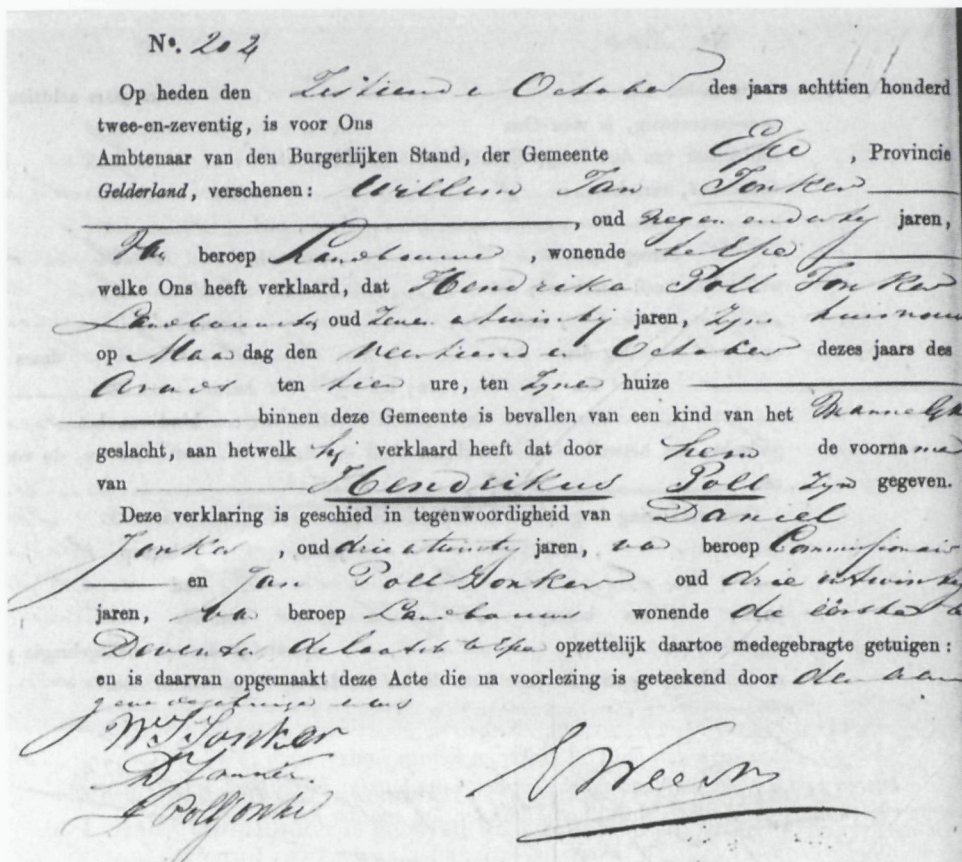 Nº. 202
Op heden den Zestiende October des jaars achttien honderd
twee-en-zeventig, is voor Ons
Ambtenaar van den Burgerlijken Stand, der Gemeente Epe, Provincie
Gelderland, verschenen: Willem Jan Jonker
, oud negen en dertig jaren,
van beroep Landbouwer, wonende te Epe
welke Ons heeft verklaard, dat Hendrika Poll Jonker
Landbouwster, oud zeven en twintig jaren, zijne huisvrouw
op Maandag den veertiende October dezes jaars des
avonds ten tien ure, ten zijne huize
binnen deze Gemeente is bevallen van een kind van het Mannelijk
geslacht, aan hetwelk hij verklaard heeft dat door hem de voorname
van Hendrikus Poll zijn gegeven.
Deze verklaring is geschied in tegenwoordigheid van Daniel
Jonker, oud drie en twintig jaren, van beroep Commissionair
en Jan Poll Jonker oud drie en twintig
jaren, van beroep Landbouwer wonende de eerste te
Deventer de laatste te Epe opzettelijk daartoe medegebragte getuigen:
en is daarvan opgemaakt deze Acte die na voorlezing is geteekend door den aan
gever de getuigen en ons
W J Jonker
D Jonker
J Poll Jonker